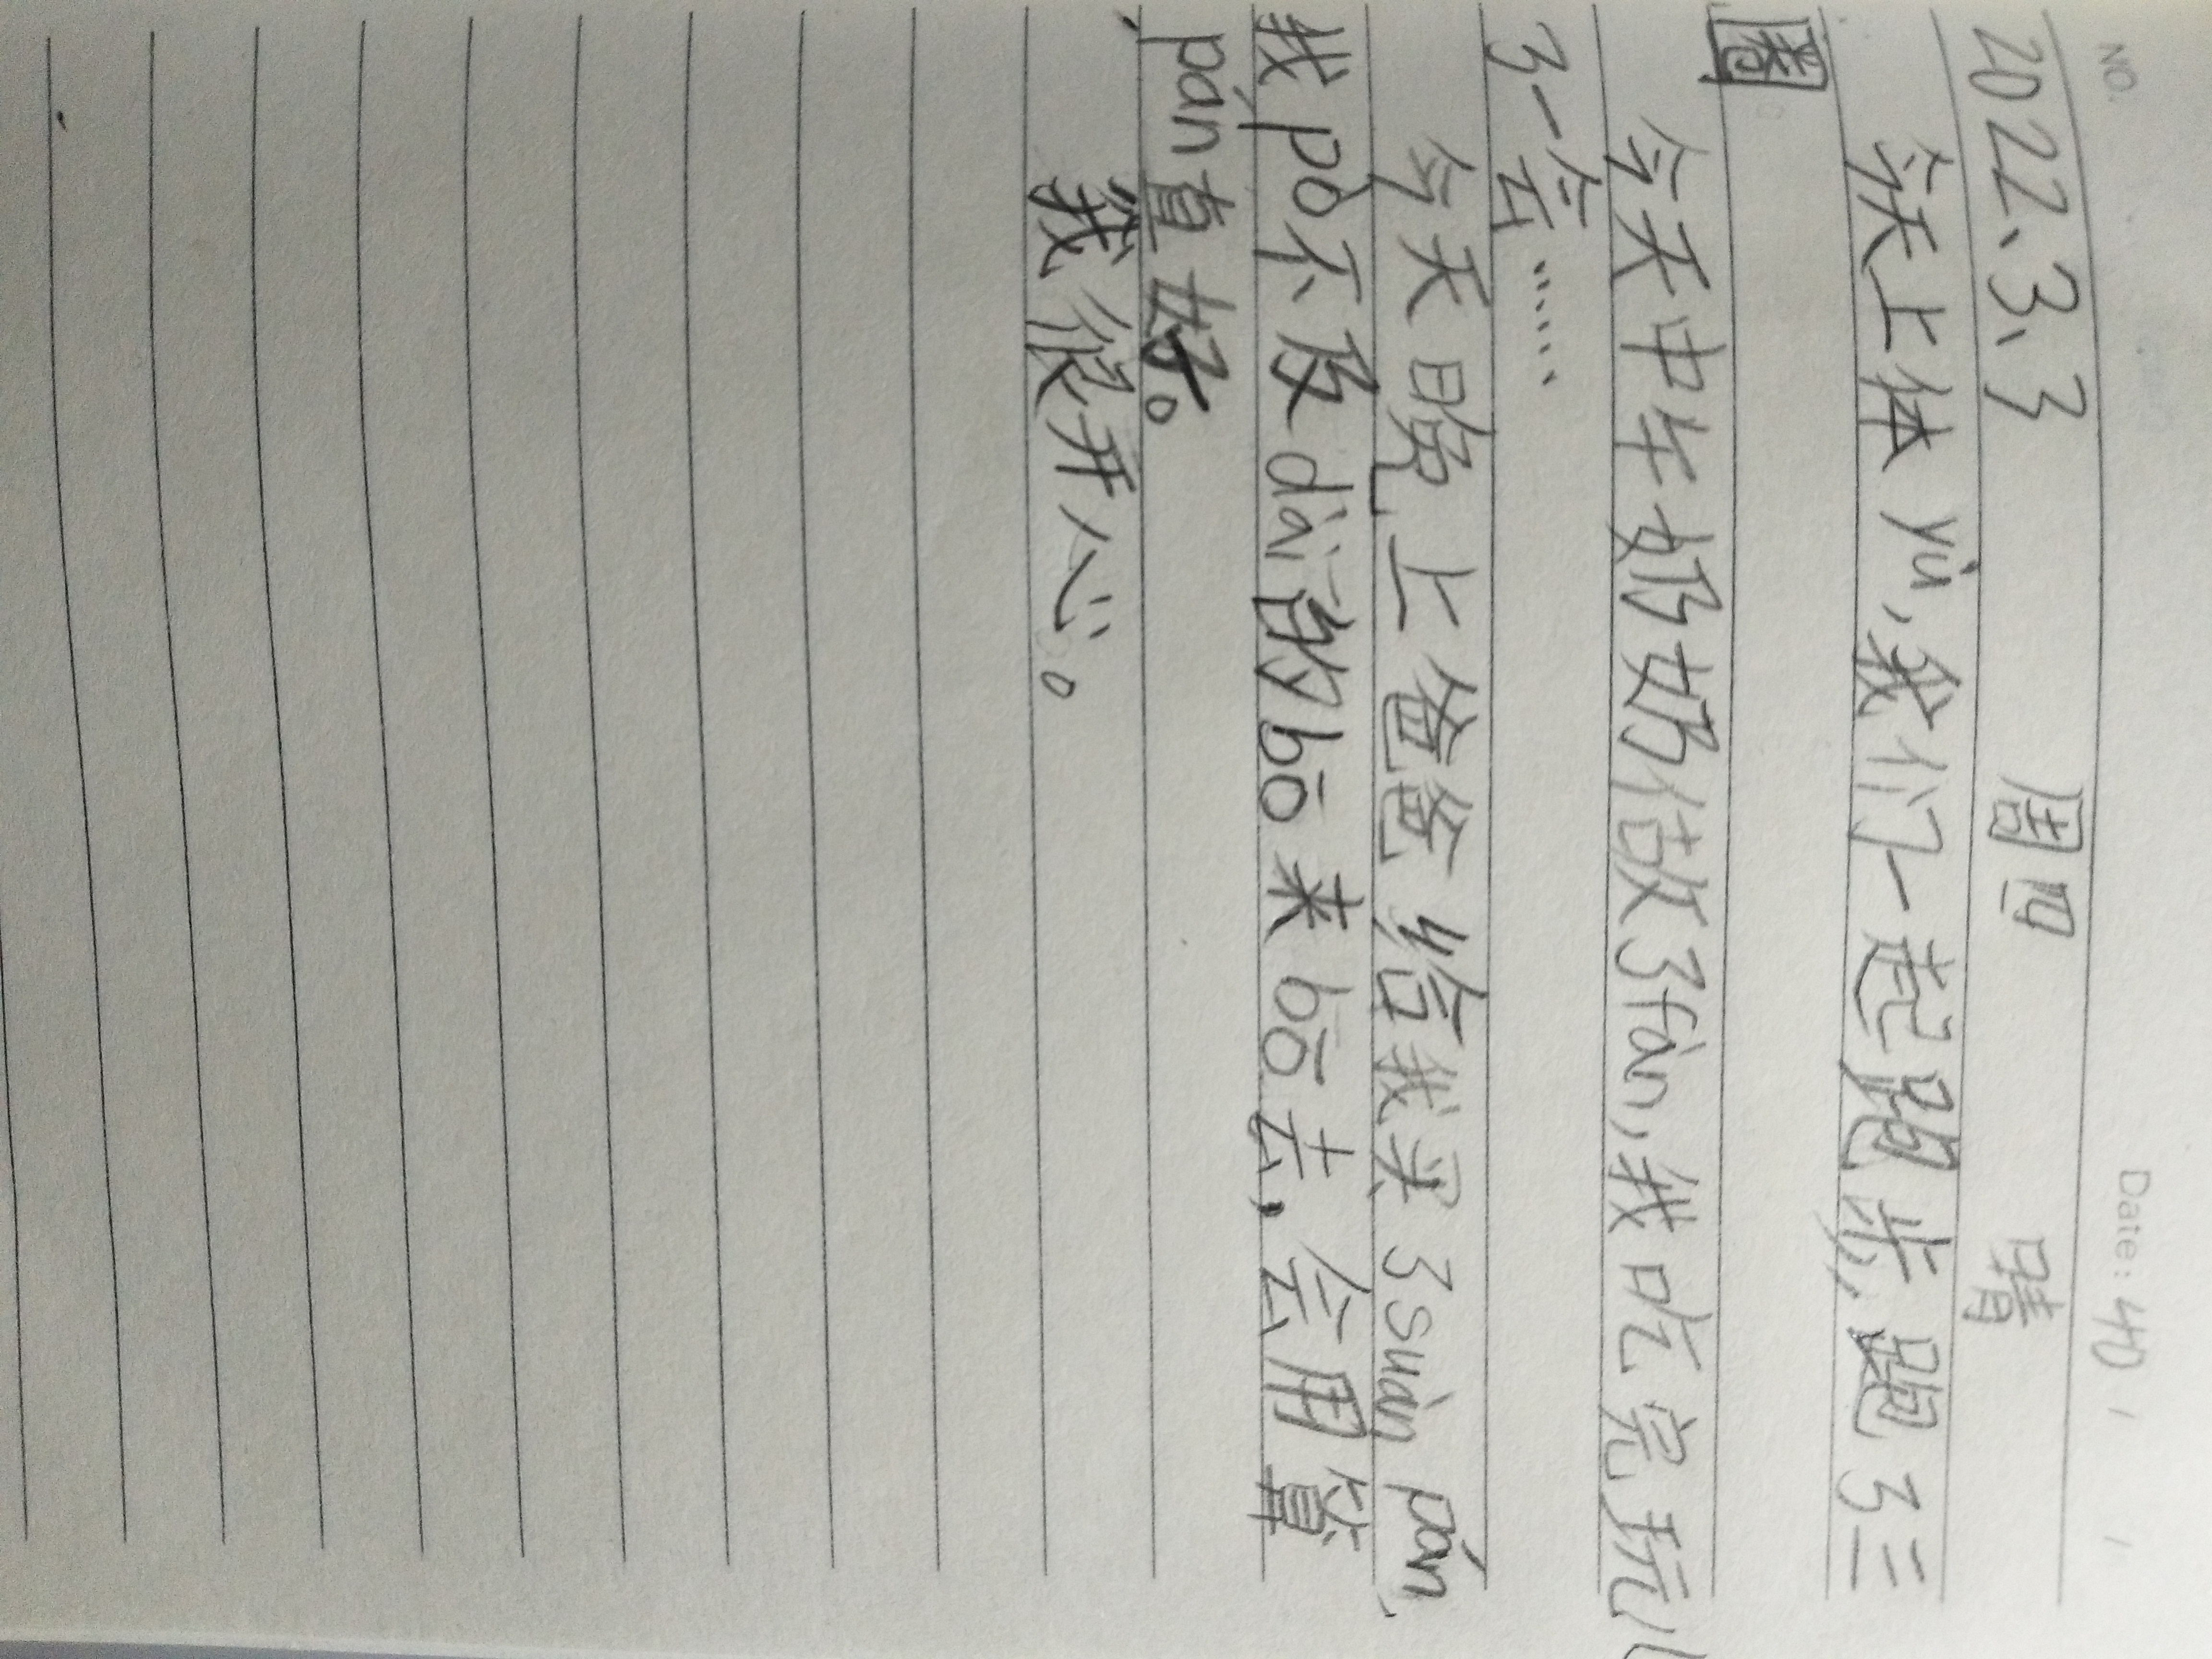 NO.
Date: 40 / /
2022、3、3 周四 晴
今天上体yù,我们一起跑步,跑了三
圈
今天中午奶奶做了fàn,我吃完玩儿
了一会……
今天晚上爸爸给我买了suàn pán,
我pò不及dāi的bō来bō去,会用算
pán真好。
我很开心。